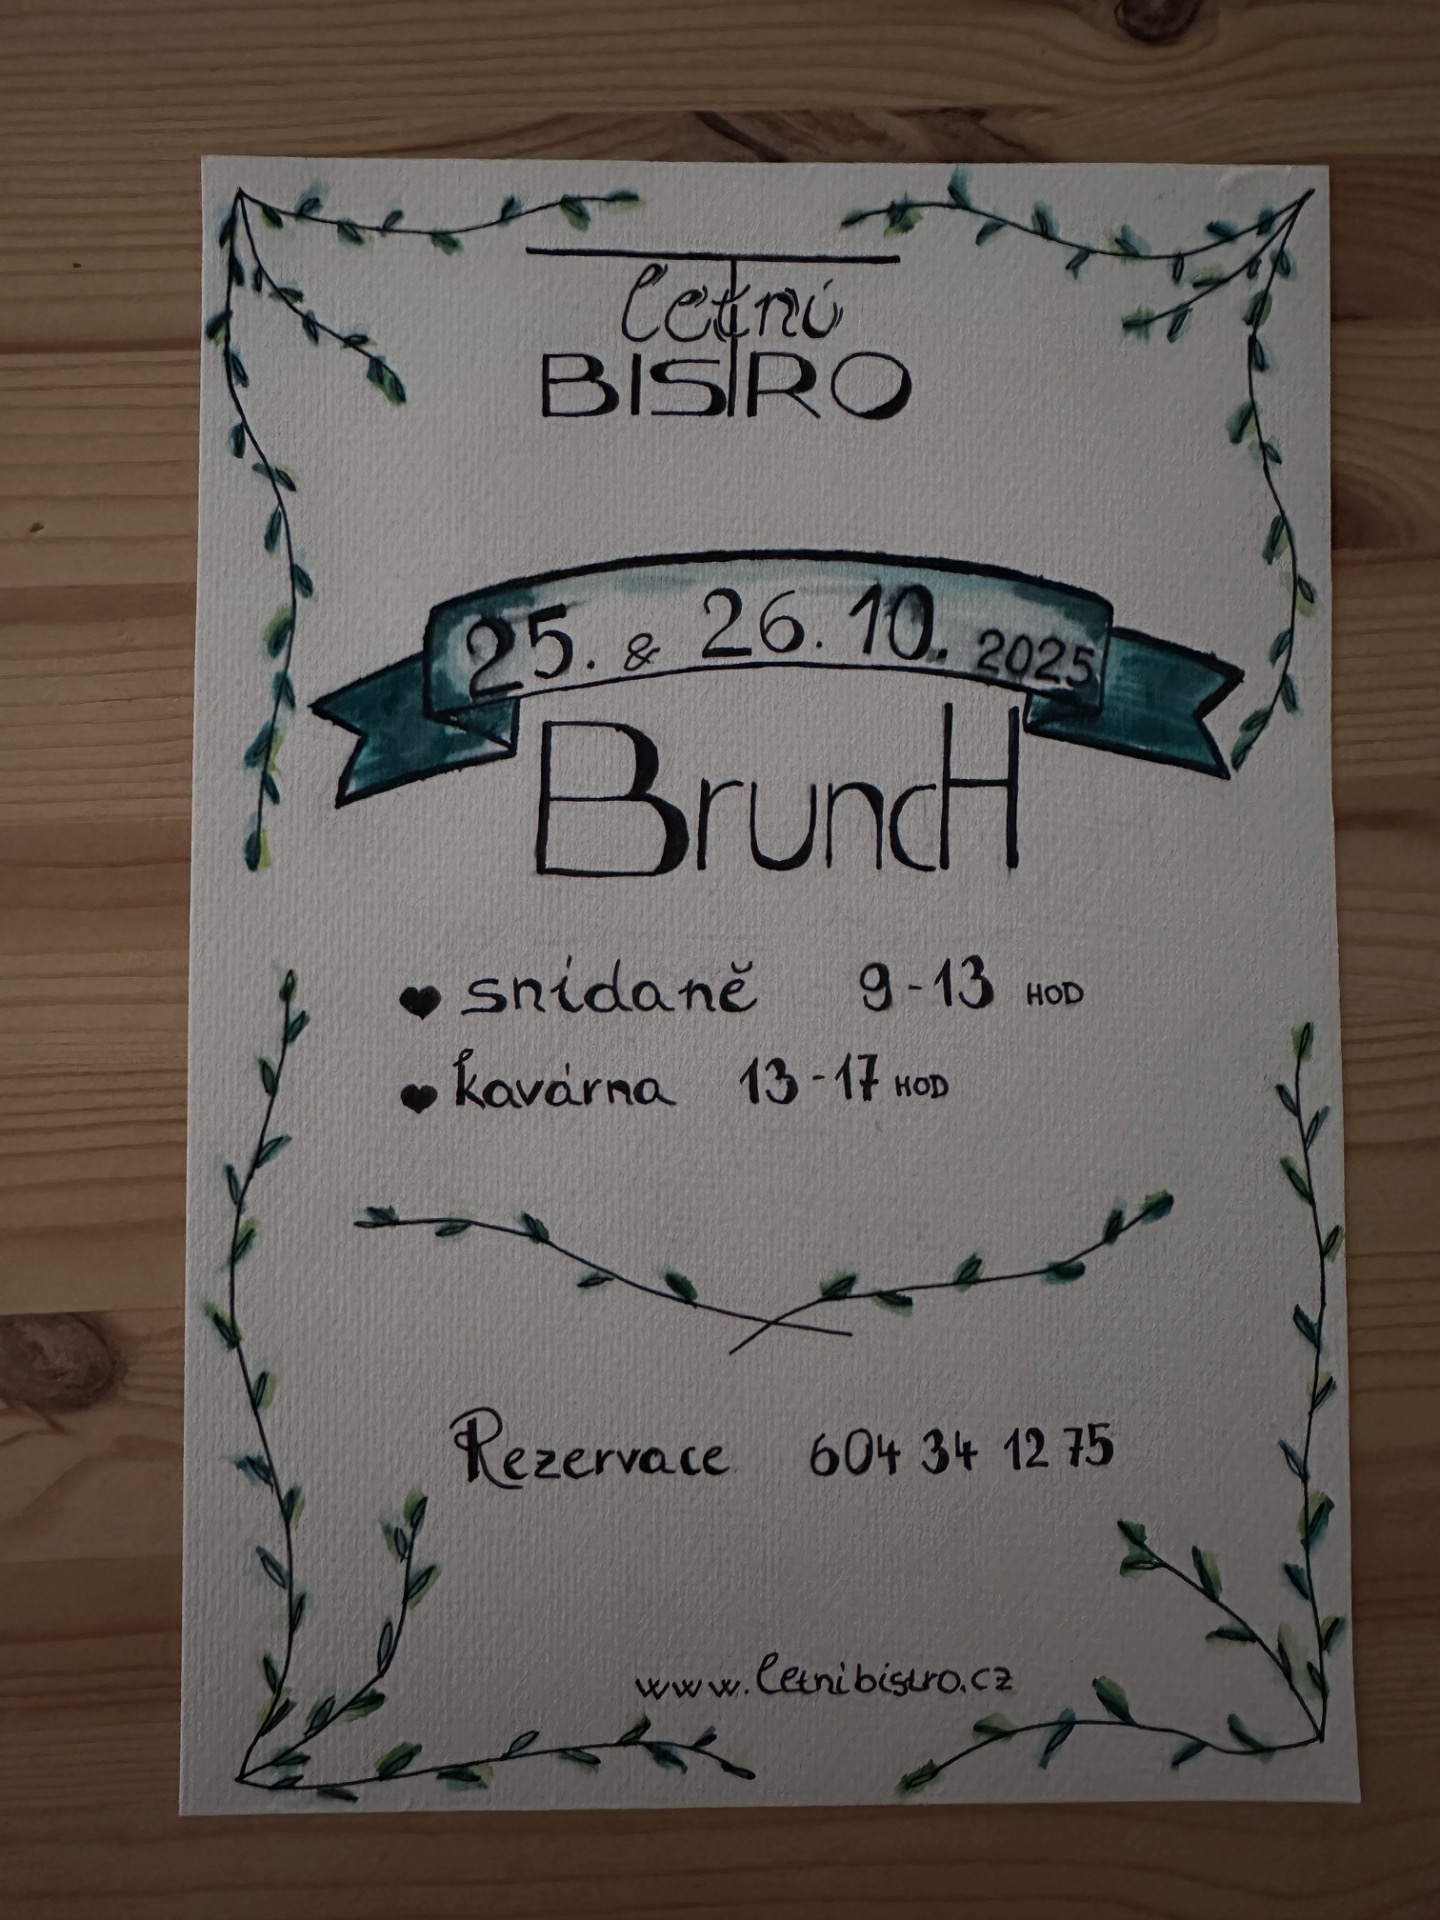 letní
BISTRO
25. & 26. 10. 2025
BruncH
snídaně 9-13 HOD
kavárna 13-17 HOD
Rezervace 604 34 12 75
www.letnibistro.cz